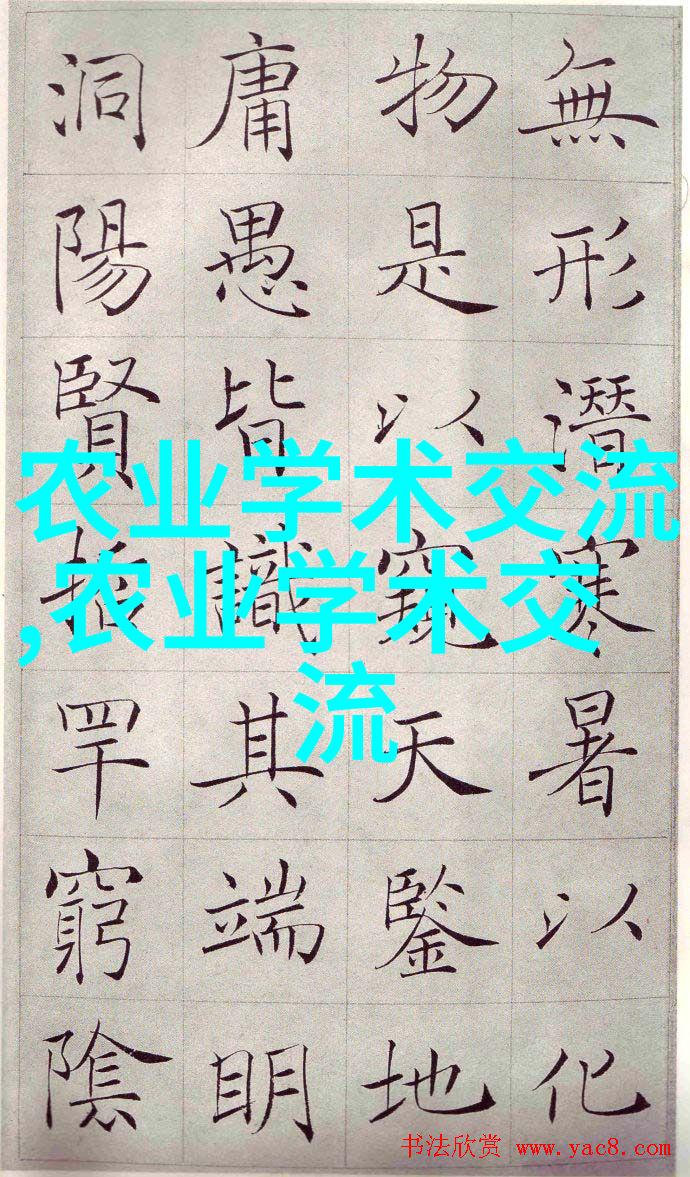 無形潛寒暑以化
物是以窺天鑒地
庸愚皆識其端明
洞陽賢罕窮陰
农业学术交流
,农业学术交
流
书法欣赏 www.yac8.com